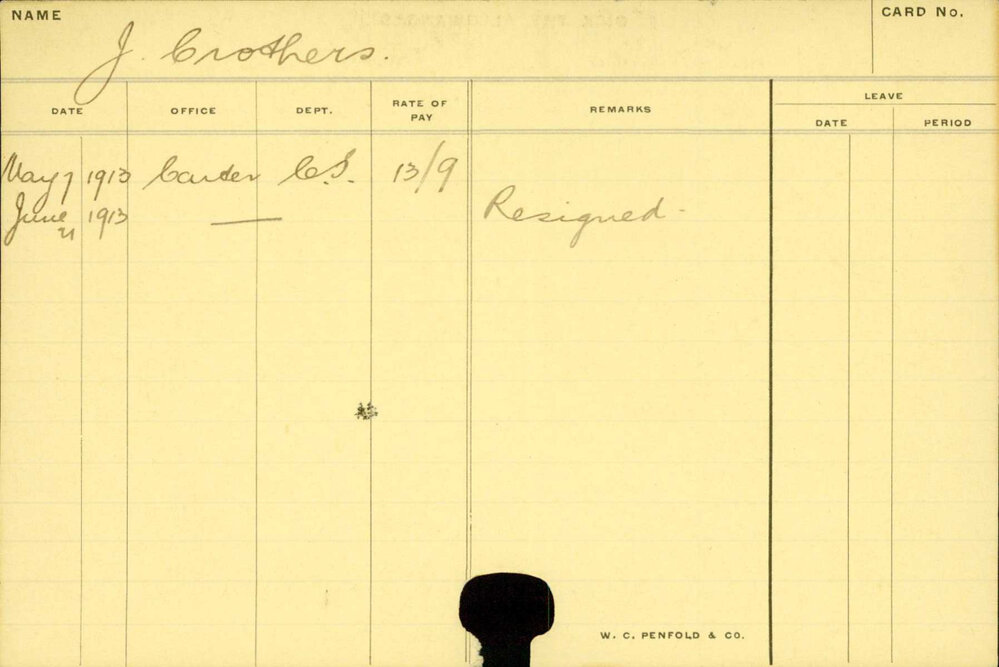 NAME
CARD No.
J. Crothers.
DATE OFFICE DEPT. RATE OF PAY REMARKS LEAVE
DATE PERIOD
May 7 1913 Carter C.S. 13/9
June 21 1913 — Resigned -
W. C. PENFOLD & CO.